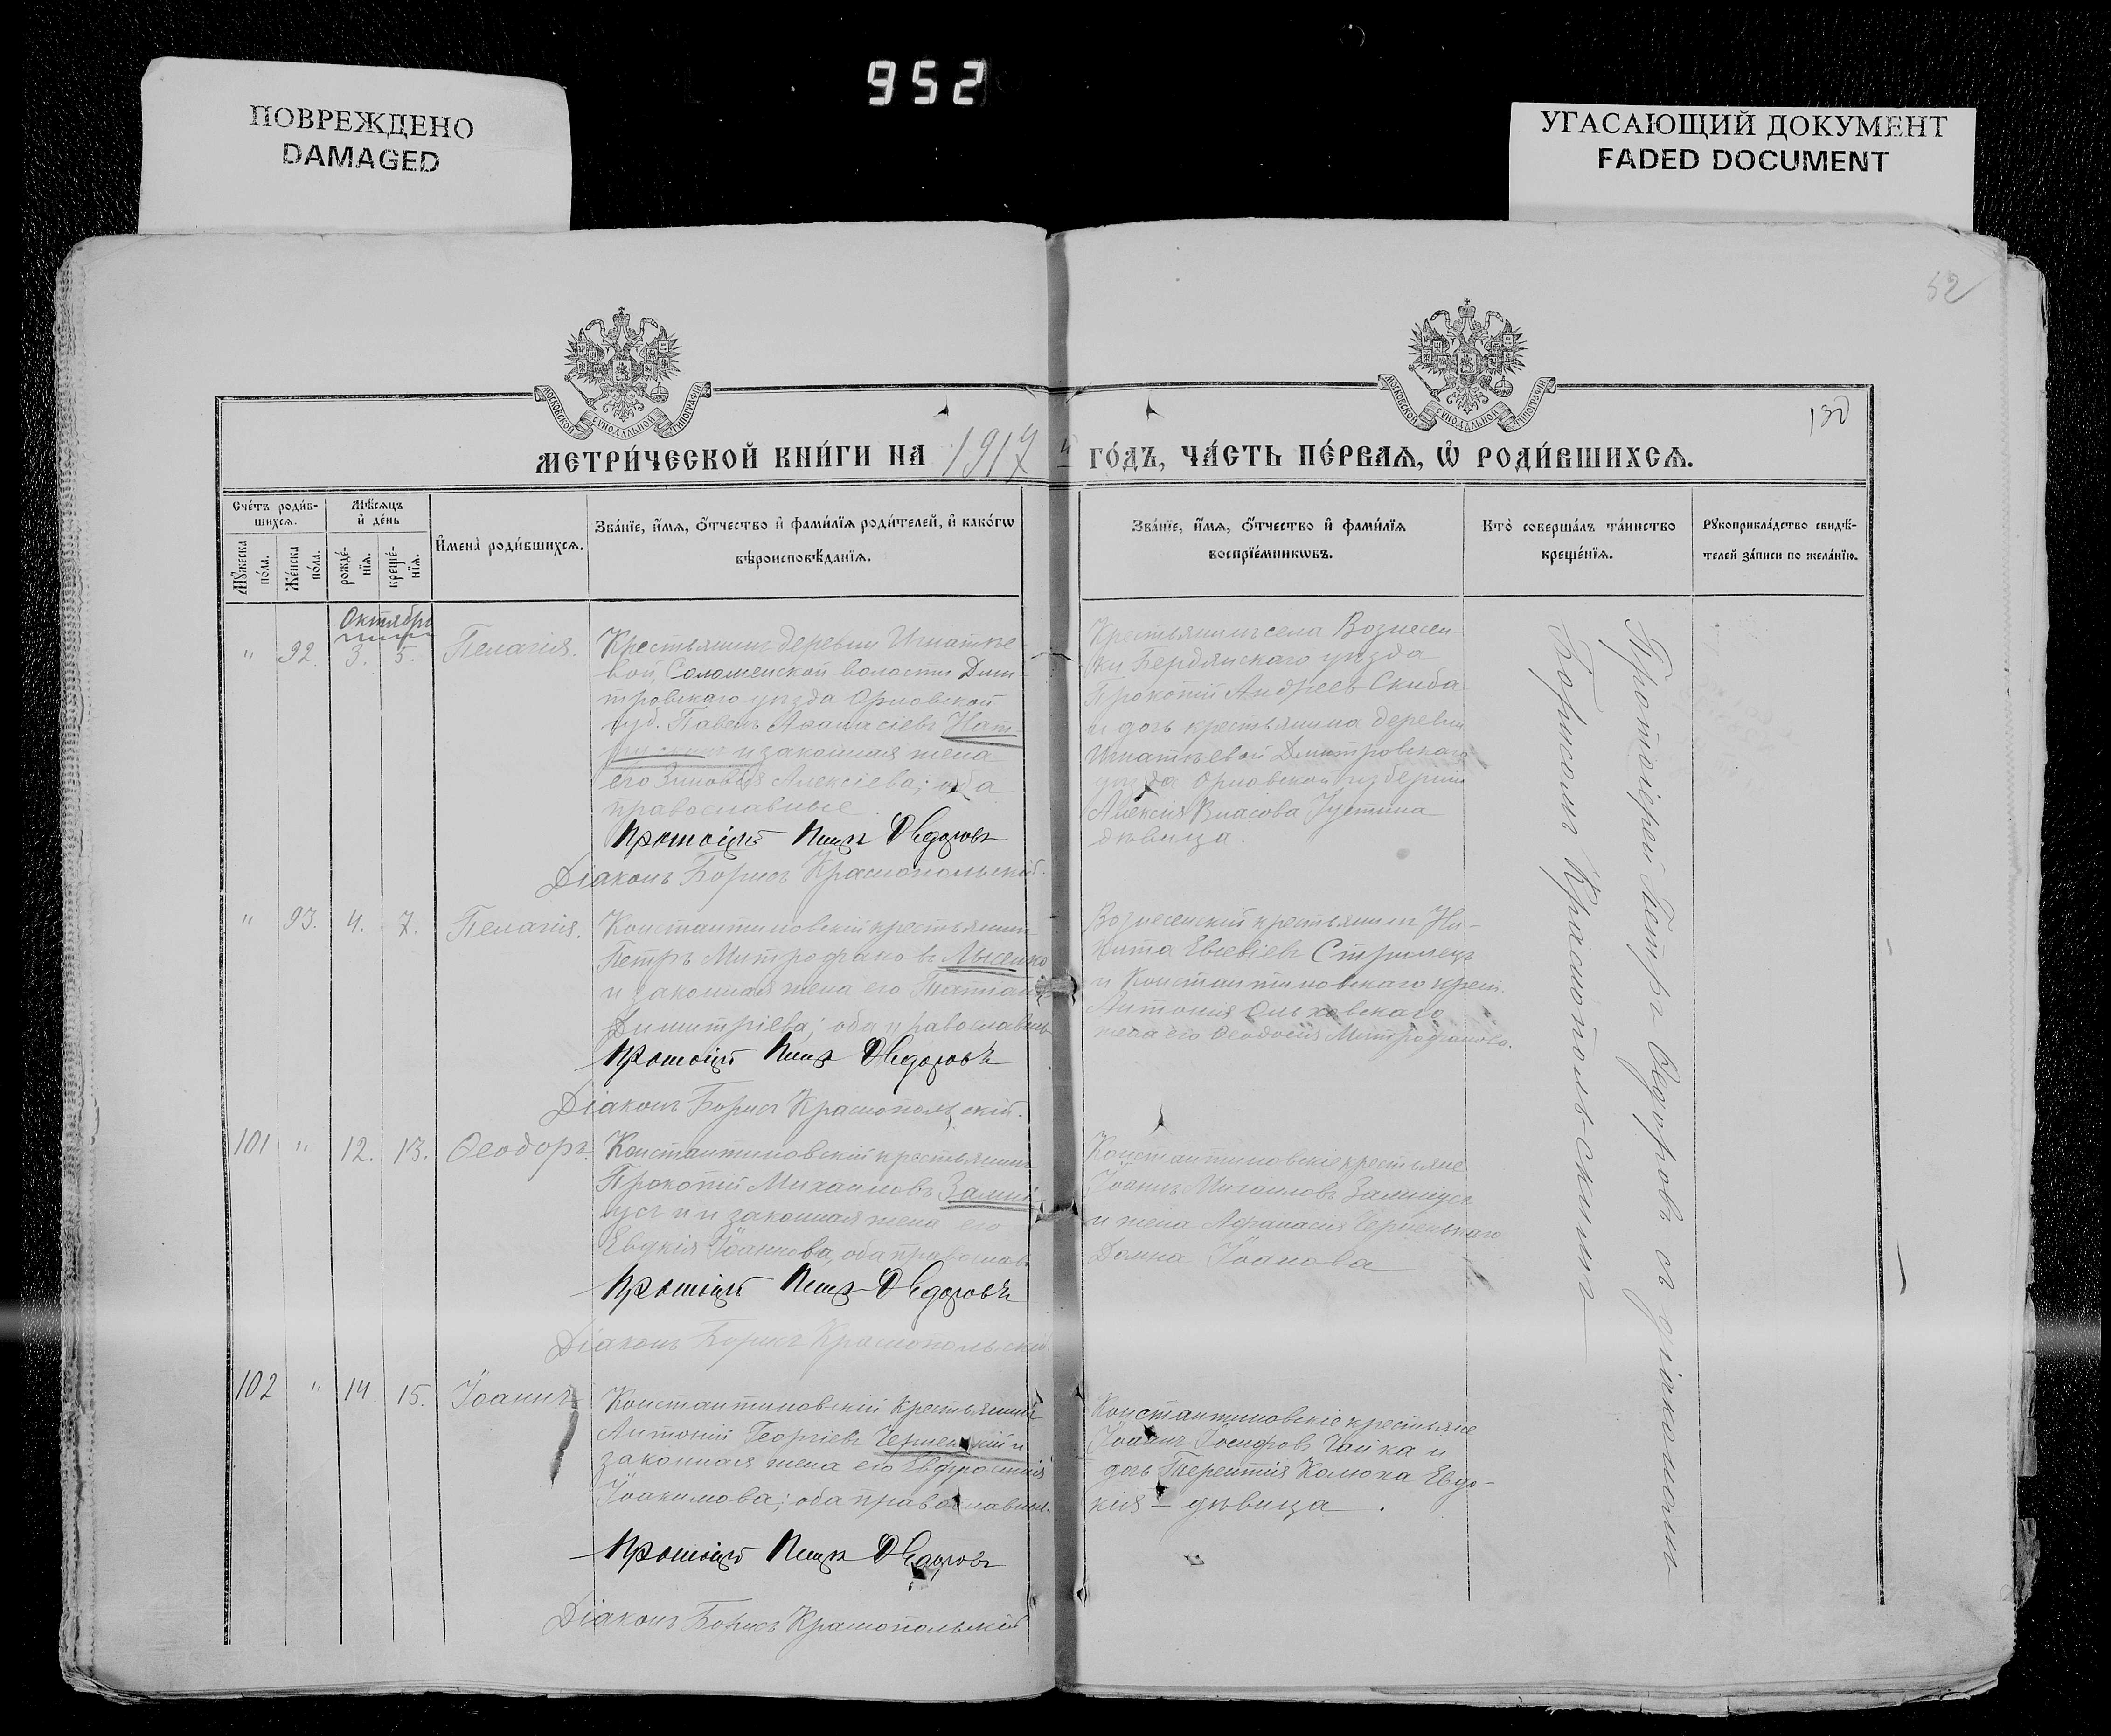 952
ПОВРЕЖДЕНО
DAMAGED
УГАСАЮЩИЙ ДОКУМЕНТ
FADED DOCUMENT
52
130
МОСКОВСКОЙ СѴНОДАЛЬНОЙ ТИПОГРАФІИ
МОСКОВСКОЙ СѴНОДАЛЬНОЙ ТИПОГРАФІИ
МЕТРИ́ЧЕСКОЙ КНИ́ГИ НА 1917 й ГО́ДЪ, ЧА́СТЬ ПЕ́РВАѦ, Ѡ҆ РОДИ́ВШИХСѦ.
Сче́тъ роди́вшихсѧ.
Мꙋ́жеска по́ла.
Же́нска по́ла.
Мѣ́сѧцъ и҆ де́нь
рожде́нїѧ.
креще́нїѧ.
И҆мена̀ роди́вшихсѧ.
Зва́нїе, и҆́мѧ, ѻ҆́тчество и҆ фами́лїѧ роди́телей, и҆ како́гѡ
вѣроисповѣ́данїѧ.
Зва́нїе, и҆́мѧ, ѻ҆́тчество и҆ фами́лїѧ
воспрїе́мникѡвъ.
Кто̀ соверша́лъ та́инство
креще́нїѧ.
Рꙋкоприкла́дство свидѣ́-
телей за́писи по жела́нїю.
Октябрь
" 92. 3. 5. Пелагія.
Крестьянинъ деревни Игнатье
вой, Соломенской волости Дми-
тровскаго уѣзда Орловской
губ. Павелъ Аѳанасіевъ
и законная жена
его Зиновія Алексіева; оба
православные
Протоіер Петръ Ѳедоровъ
Діаконъ Борисъ Краснопольскій.
Крестьянинъ села Вознесен-
ки Бердянскаго уѣзда
Прокопій Андреевъ Скиба
и дочь крестьянина деревни
Игнатьевой Дмитровскаго
уѣзда Орловской губерніи
Алексія Власова Іустина
дѣвица.
" 93. 4. 7. Пелагія.
Константиновскій крестьянин
Петръ Митрофановъ Лысенко
и законная жена его Татіана
Димитріева; оба православны
Протоіер Петръ Ѳедоровъ
Діаконъ Борисъ Краснопольскій.
Вознесенскій крестьянинъ Ни-
кита Евсевіевъ Стрилецъ
и Константиновскаго крест.
Антонія Ольховскаго
жена его Ѳеодосія Митрофанова.
101 " 12. 13. Ѳеодоръ.
Константиновскій крестьянинъ
Прокопій Михаиловъ
и законная жена его
Евдкія Іоаннова, оба православ.
Протоіер Петръ Ѳедоровъ
Діаконъ Борисъ Краснопольскій.
Константиновскіе крестьяне
Іоаннъ Михаиловъ
и жена Афанасія Черненькаго
Домна Іоанова
102 " 14. 15. Іоаннъ
Константиновскій крестьянинъ
Антоній Георгіевъ Черненькій и
законная жена его Евфросинія
Іоакимова; оба православны.
Протоіер Петръ Ѳедоровъ
Діаконъ Борисъ Краснопольскій
Константиновскіе крестьяне
Іоаннъ Іосифовъ Чайка и
дочь Терентія Калюха Евдо-
кія – дѣвица.
Протоіерей Петръ Ѳедоровъ съ діакономъ
Борисомъ Краснопольскимъ